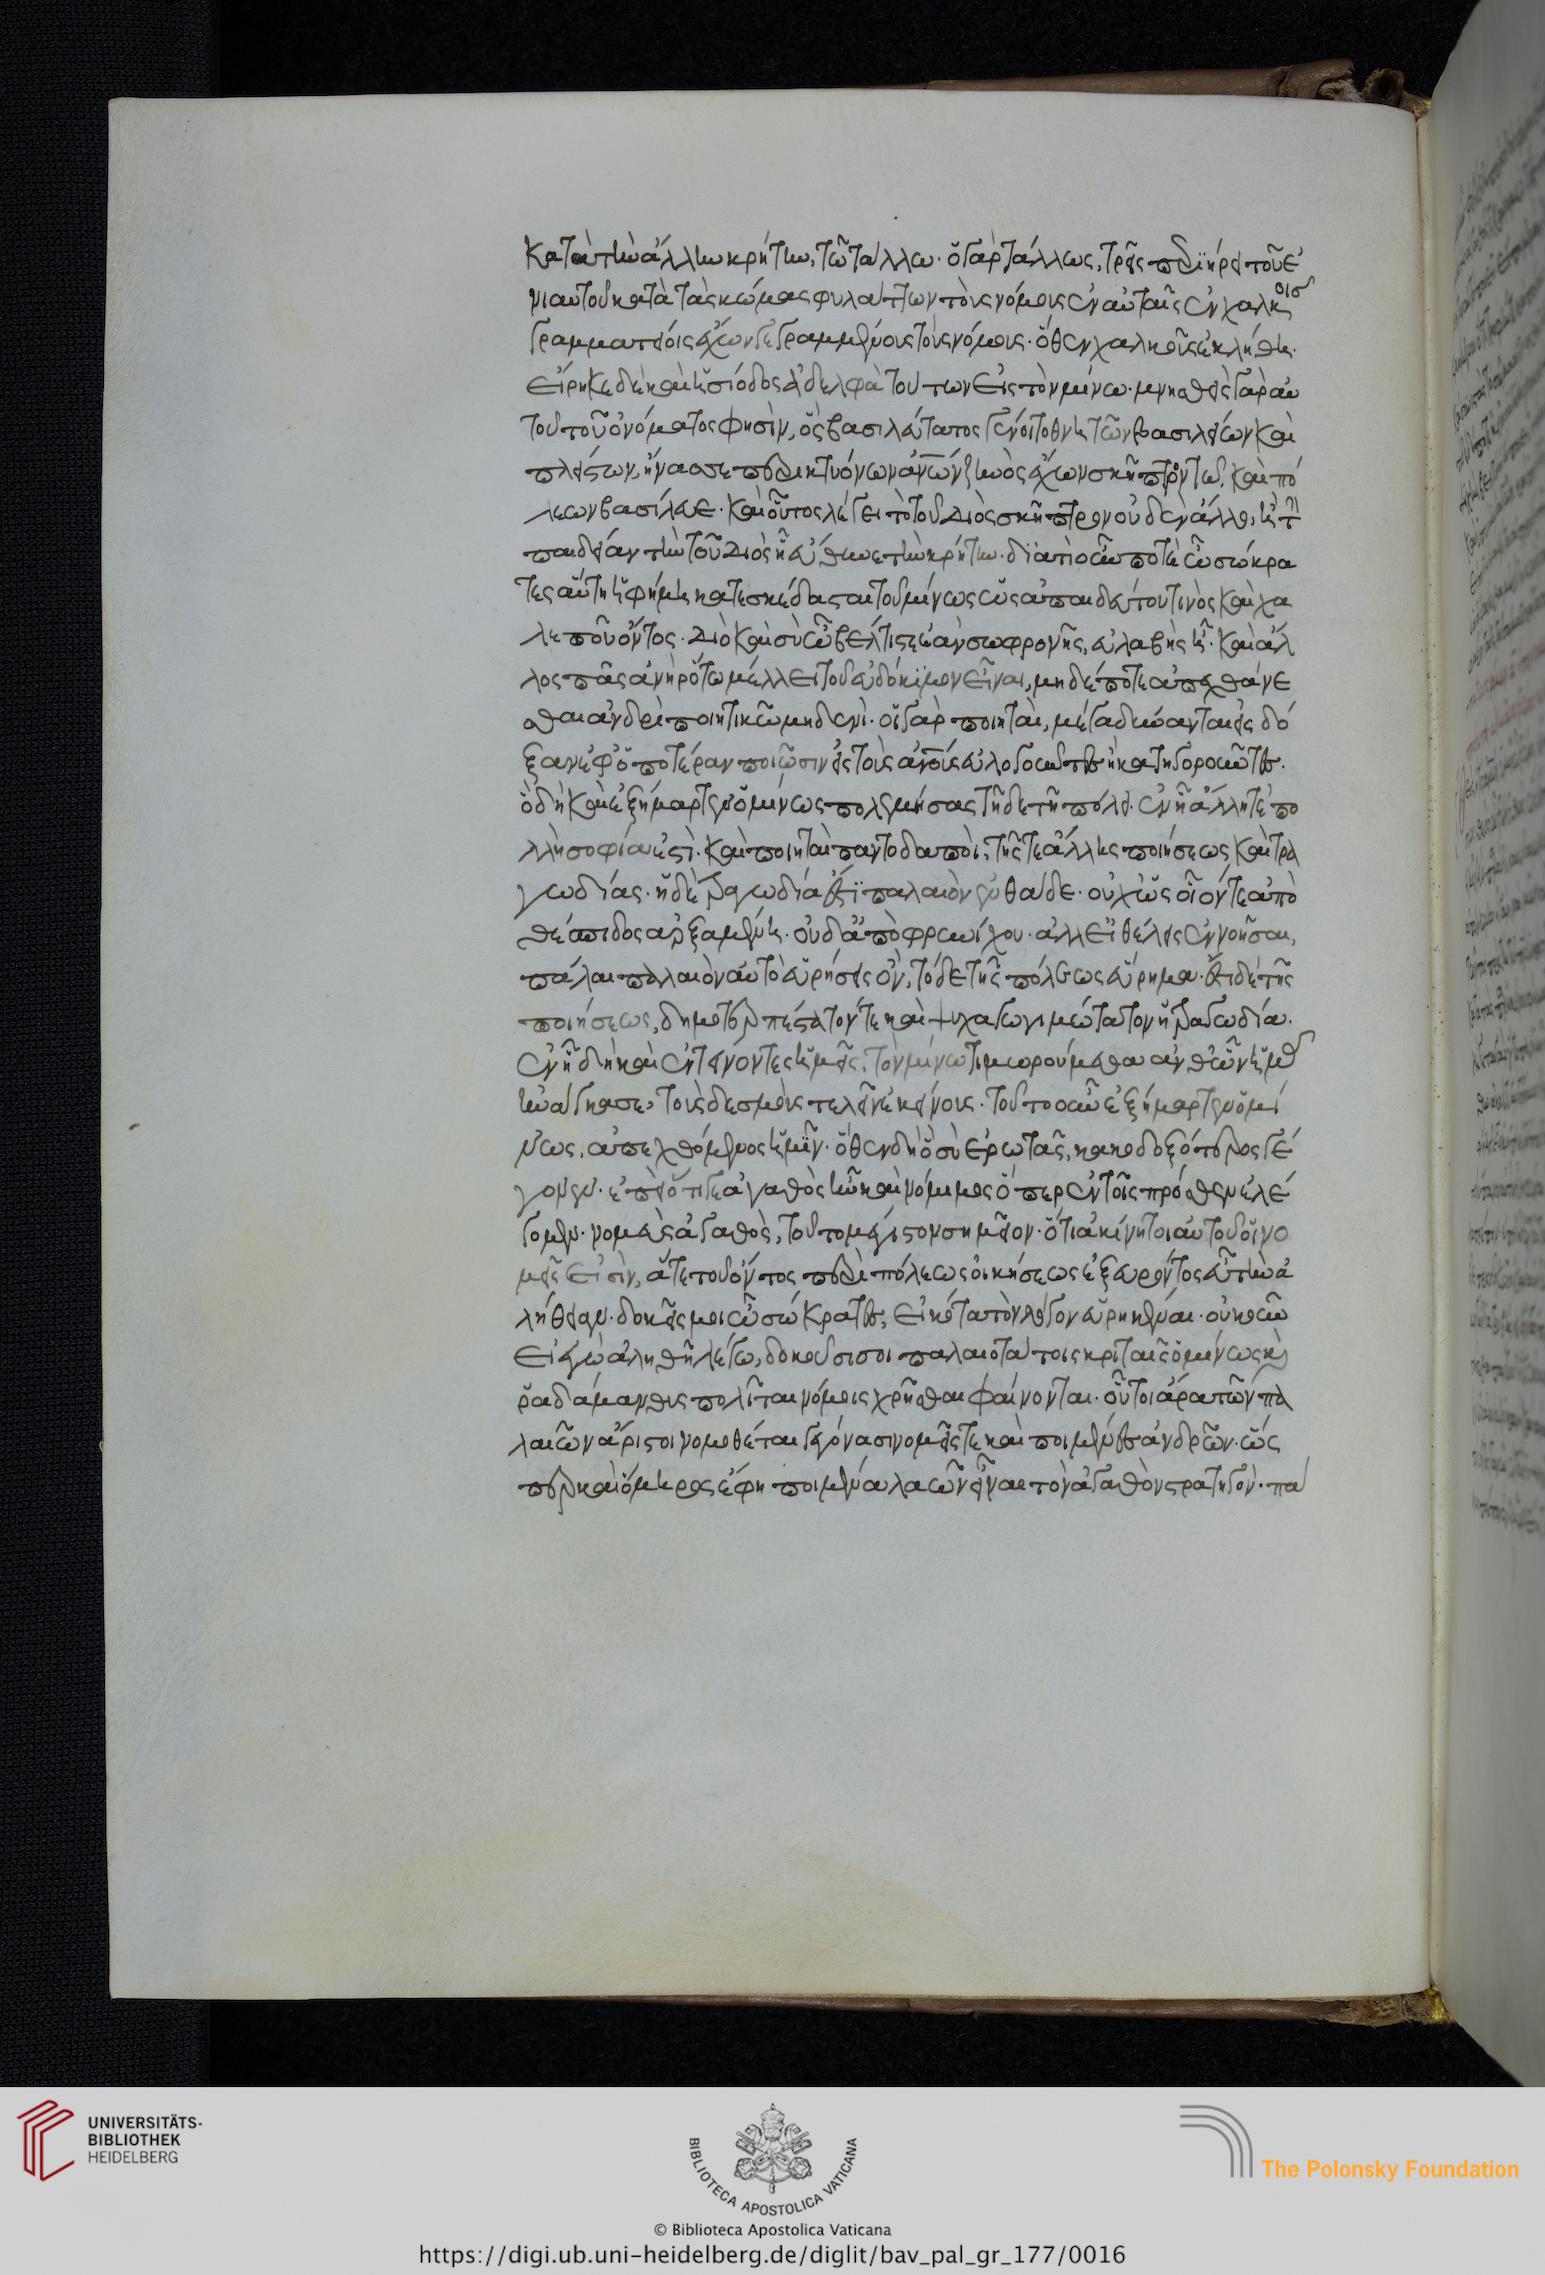 κατὰ τὴν ἄλλην κρήτην, τῶ τάλλω· ὁ γὰρ τάλλως, τρεῖς περιήρει τοῦ ἐ
νιαυτοῦ κατὰ τὰς κώμας φυλάττων τοὺς νόμους ἐν αὐταῖς ἐν χαλκοῖσ
γραμματείοις ἔχων γεγραμμένους τοὺς νόμους· ὅθεν χαλκοῦς ἐκλήθη·
εἴρηκε δὲ καὶ ἡσίοδος ἀδελφὰ τούτων εἰς τὸν μίνω· μνησθεὶς γὰρ αὐ
τοῦ τοῦ ὀνόματος φησὶν, ὃς βασιλεύτατος γένοιτο θνητῶν βασιλείων καὶ
πλείστων, ἤνασσε περικτυόνων ἀνῶν ζηνὸς ἔχων σκῆπτρον τῶ. καὶ πό
λεων βασίλευε· καὶ οὗτος λέγει τὸ τοῦ διὸς σκῆπτρον οὐδὲν ἄλλο, ἢ τὴ
παιδείαν τὴν τοῦ διὸς ἧ εὔθυνε τὴν κρήτην. διὰ τί οὖν ποτὲ ὦ σώκρα
τες αὕτη ἡ φήμη κατεσκέδασται τοῦ μίνως ὡς ἀπαιδεύτου τινὸς καὶ χα
λεποῦ ὄντος· διὸ καὶ σὺ ὦ βέλτιστε ἐὰν σωφρονῆς, εὐλαβήση· καὶ ἄλ
λος πᾶς ἀνὴρ ὅτω μέλλει τοῦ εὐδόκιμον εἶναι, μηδέποτε ἀπεχθάνε
σθαι ἀνδρὶ ποιητικῶ μηδενί· οἱ γὰρ ποιηταὶ, μέγα δύνανται εἰς δό
ξαν ἐφ' ὁπότερ' ἂν ποιῶσιν εἰς τοὺς ἀνοὺς εὐλογοῦντες ἢ κατηγοροῦντες.
ὃ δὴ καὶ ἐξήμαρτεν ὁ μίνως πολεμήσας τῆδε τῆ πόλει· ἐν ἧ ἄλλη τε πο
λλὴ σοφία ἐστὶ· καὶ ποιηταὶ παντοδαποὶ, τῆς τε ἄλλης ποιήσεως καὶ τρα
γωδίας· ἡ δὲ τραγωδία ἐστὶ παλαιὸν ἐνθάδε· οὐχ ὡς οἴονται ἀπὸ
θέσπιδος ἀρξαμένη· οὐδ' ἀπὸ φρυνίχου· ἀλλ' εἰ θέλεις ἐννοῆσαι,
πάλαι παλαιὸν αὐτὸ εὑρήσεις ὂν, τόδε τῆς πόλεως εὕρημα· ἔστι δὲ τῆς
ποιήσεως, δημοτερπέστατόν τε καὶ ψυχαγωγικώτατον ἡ τραγωδία.
ἐν ἧ δὴ καὶ ἐντείνοντες ἡμεῖς, τὸν μίνω τιμωρούμεθα ἀνθ' ὧν ἡμᾶς
ἠνάγκασε, τοὺς δασμοὺς τελεῖν ἐκείνους· τοῦτο οὖν ἐξήμαρτεν ὁ μί
νως, ἀπεχθόμενος ἡμῖν· ὅθεν δὴ ὃ σὺ ἐρωτᾶς, κακοδοξότερος γέ
γονεν· ἐπεὶ ὅτι γε ἀγαθὸς ἦν καὶ νόμιμος ὅπερ ἐν τοῖς πρόσθεν ἐλέ
γομεν· νομεὺς ἀγαθὸς, τοῦτο μέγιστον σημεῖον· ὅτι ἀκίνητοι αὐτοῦ οἱ νό
μοι εἰσὶν, ἅτε τοῦ ὄντος περὶ πόλεως οἰκήσεως ἐξευρόντος εὖ τὴν ἀ
λήθειαν· δοκεῖς μοι ὦ σώκρατες, εἰκότα τὸν λόγον εὑρηκέναι· οὐκοῦν
εἰ ἐγὼ ἀληθῆ λέγω, δοκοῦσι σοι παλαιοτάτοις κρῆτες οἱ μίνως καὶ
ῥαδαμάνθυς πολῖται νόμοις χρῆσθαι φαίνονται· οὗτοι ἄρα τῶν πα
λαιῶν ἄριστοι νομοθέται γεγόνασι νομεῖς τε καὶ ποιμένες ἀνδρῶν· ὥς
περ καὶ ὅμηρος ἔφη ποιμένα λαῶν εἶναι τὸν ἀγαθὸν στρατηγόν· πά
UNIVERSITÄTS-
BIBLIOTHEK
HEIDELBERG
BIBLIOTECA APOSTOLICA VATICANA
The Polonsky Foundation
© Biblioteca Apostolica Vaticana
https://digi.ub.uni-heidelberg.de/diglit/bav_pal_gr_177/0016